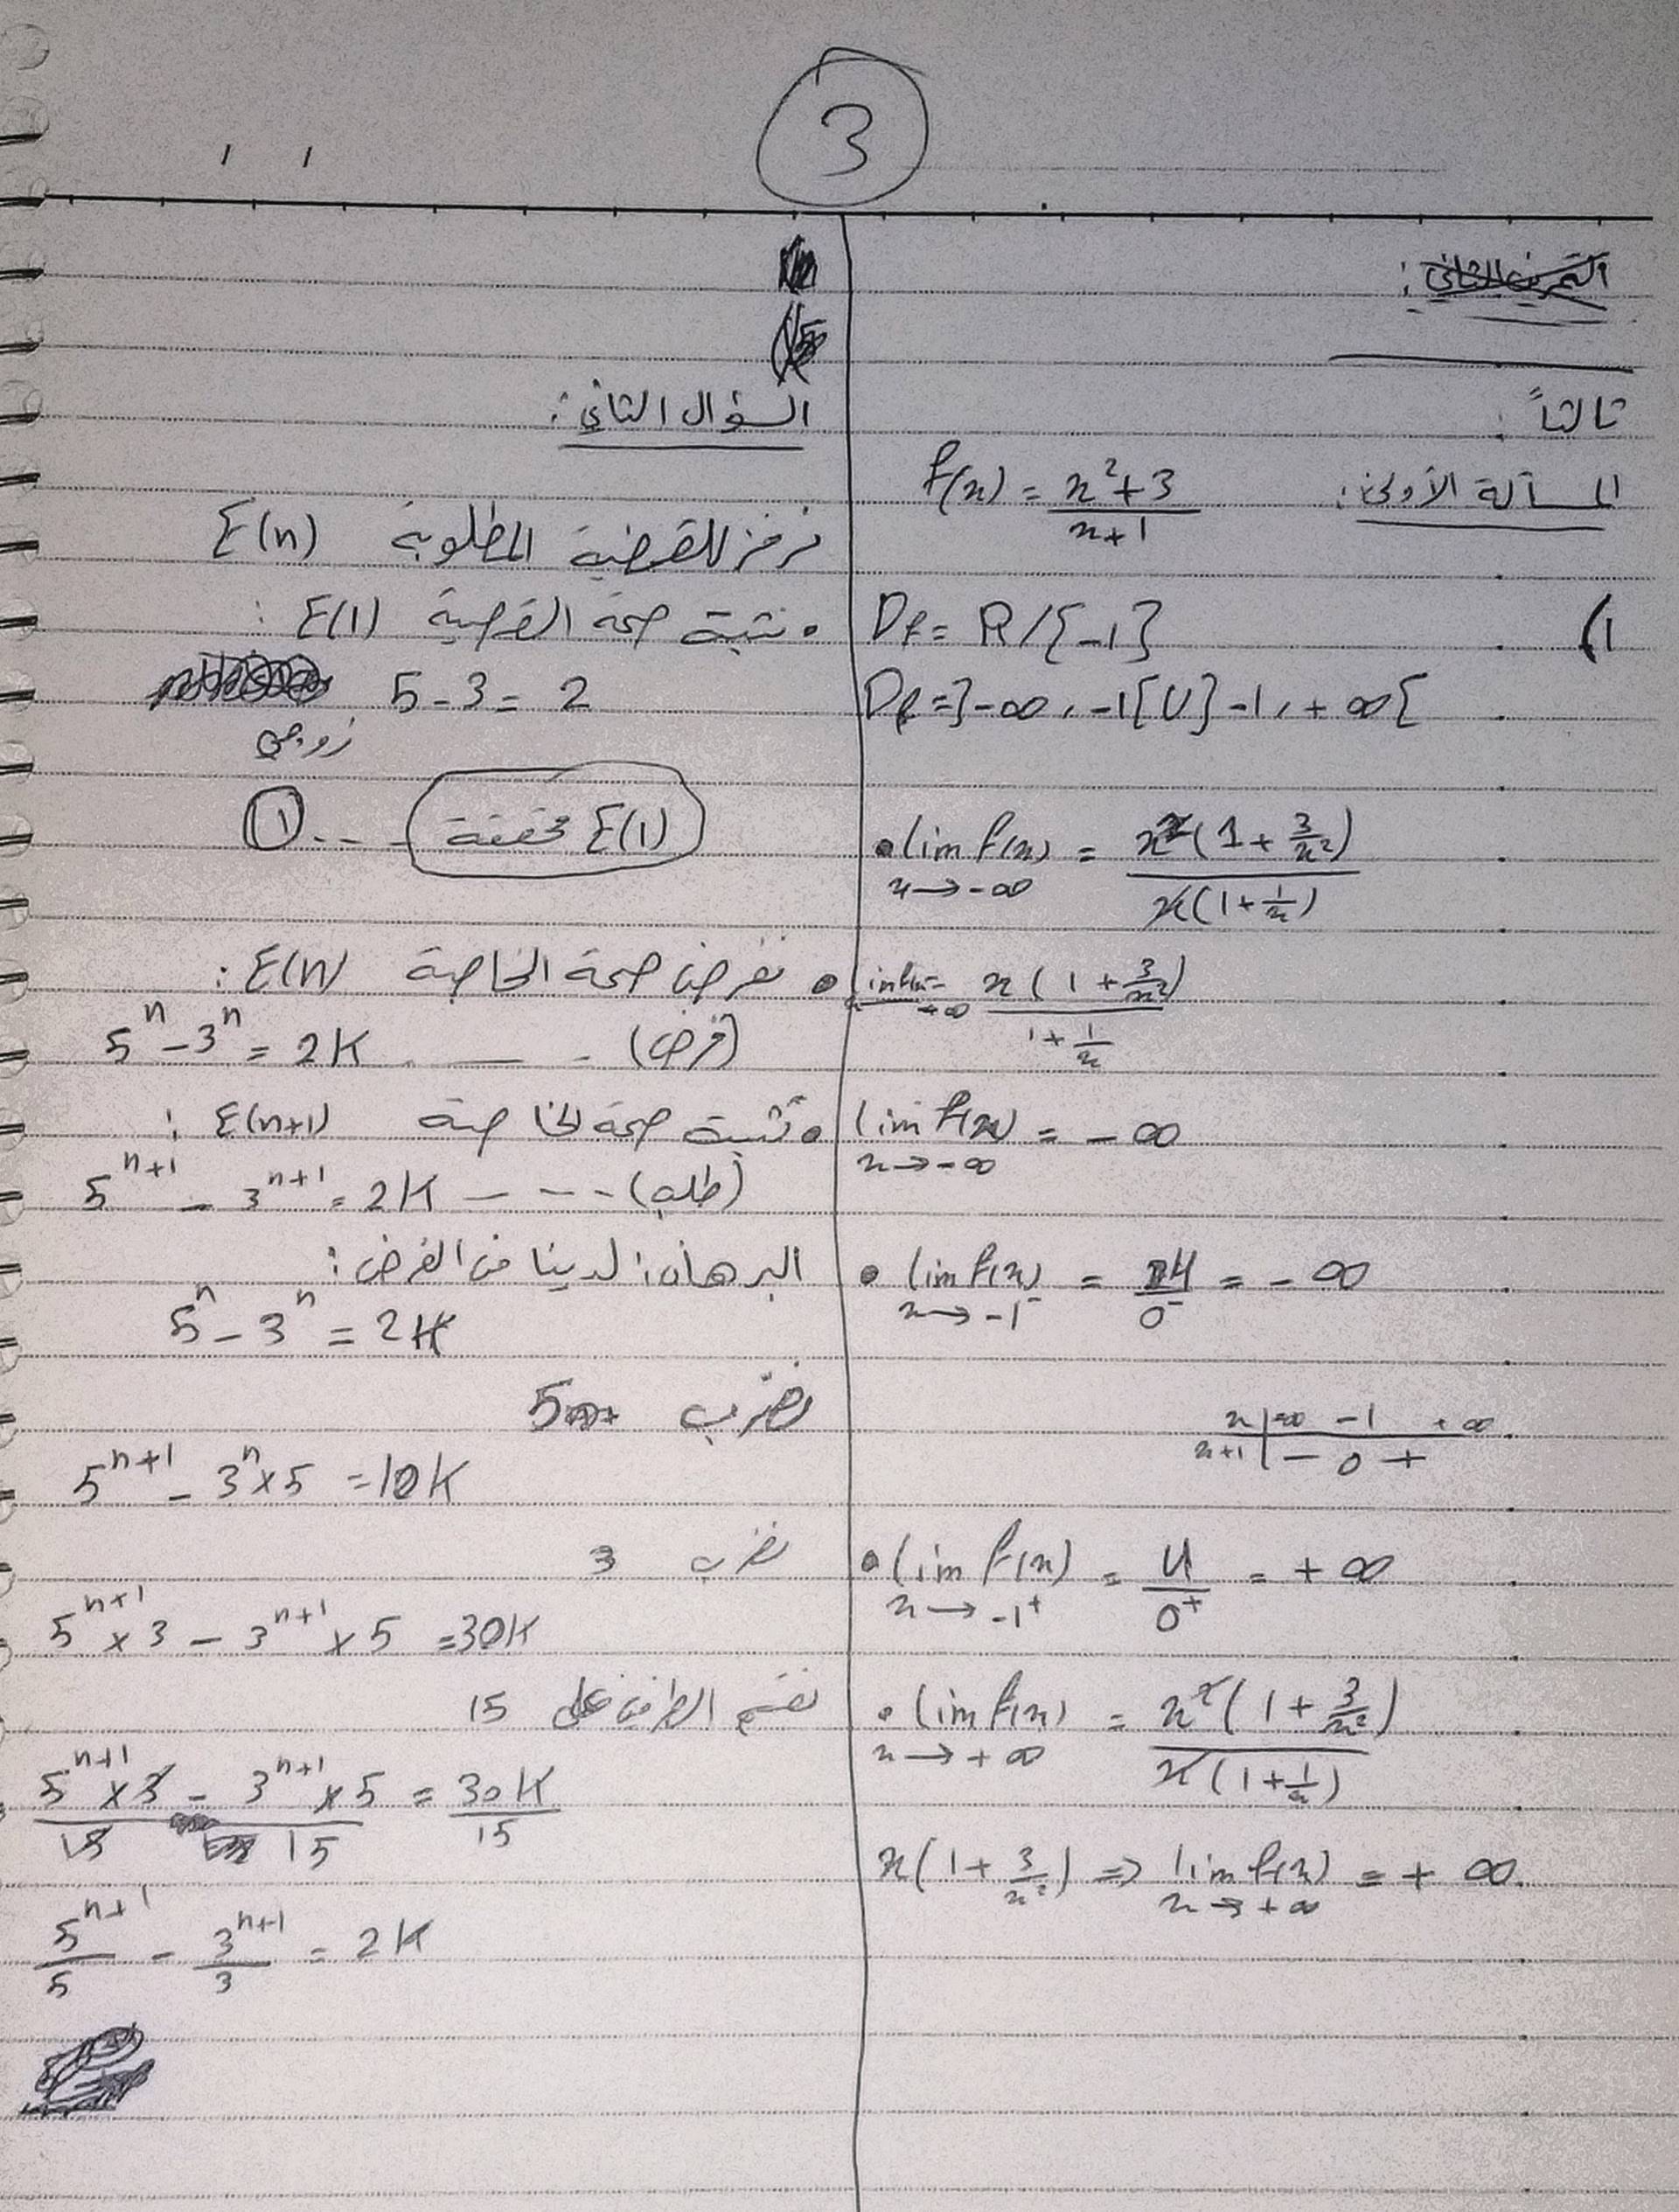 3
التمرين الثاني:
ثالثاً:
المسألة الأولى: f(x) = \frac{x^2+3}{x+1}
1) D_f = R/{-1}
D_f = ]-∞, -1[ U ]-1, +∞[
• lim_{x→-∞} f(x) = \frac{x^2(1+\frac{3}{x^2})}{x(1+\frac{1}{x})}
lim f(x) = \frac{x(1+\frac{3}{x^2})}{1+\frac{1}{x}}
lim_{x→-∞} f(x) = -∞
• lim_{x→-1^-} f(x) = \frac{4}{0^-} = -∞
x | -∞ -1 +∞
x+1 | - 0 +
• lim_{x→-1^+} f(x) = \frac{4}{0^+} = +∞
• lim_{x→+∞} f(x) = \frac{x^2(1+\frac{3}{x^2})}{x(1+\frac{1}{x})}
x(1+\frac{3}{x^2}) ⇒ lim_{x→+∞} f(x) = +∞
السؤال الثاني:
نرمز للقضية المطلوبة E(n)
• نثبت صحة القضية E(1):
5 - 3 = 2
زوجي
E(1) محققة ... ①
• نفرض صحة الخاصة E(n):
5^n - 3^n = 2K ... (فرض)
• نثبت صحة الخاصة E(n+1):
5^{n+1} - 3^{n+1} = 2K ... (طلب)
البرهان: لدينا من الفرض:
5^n - 3^n = 2K
نضرب 5
5^{n+1} - 3^n × 5 = 10K
نضرب 3
5^{n+1} × 3 - 3^{n+1} × 5 = 30K
نقسم الطرفين على 15
\frac{5^{n+1} × 3}{15} - \frac{3^{n+1} × 5}{15} = \frac{30K}{15}
\frac{5^{n+1}}{5} - \frac{3^{n+1}}{3} = 2K